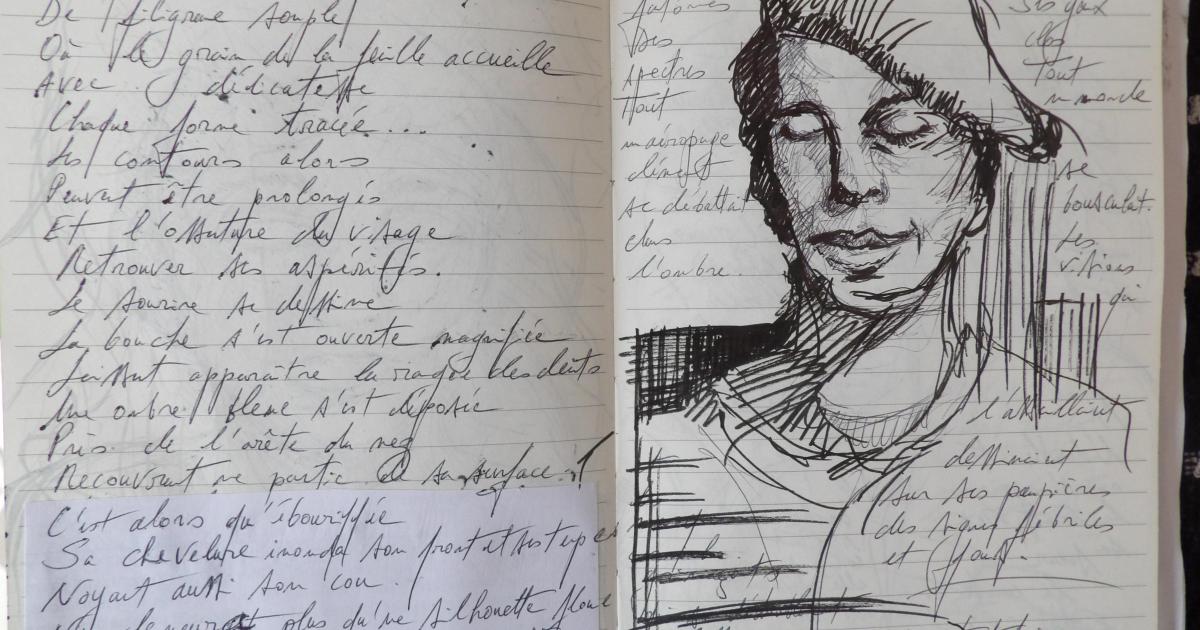 De filigrane souple
Où le grain de la feuille accueille
Avec délicatesse
Chaque forme tracée...
Les contours alors
Peuvent être prolongés
Et l'ossature du visage
Retrouver ses aspérités.
Le sourire se dessine
La bouche s'est ouverte magnifiée
Laissant apparaître la des dents
Une ombre bleue s'est déposée
Près de l'arête du nez
Recouvrant une partie de sa surface.
C'est alors qu'ébouriffée
Sa chevelure inonda son front et ses tempes
Noyant aussi son cou.
plus qu'une silhouette floue
fantômes
Des
spectres
Tout
un aéropage
dément
se débattait
dans
l'ombre.
Ses yeux
clos
Tout
un monde
se
bousculait.
Les
visions
qui
l'assaillaient
dessinaient
sur ses paupières
des signes fébriles
et flous.